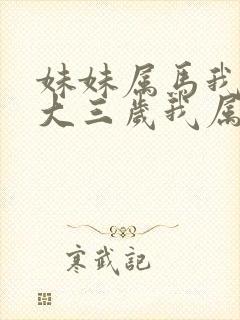 妹妹属马我
大三岁我属
寒武記